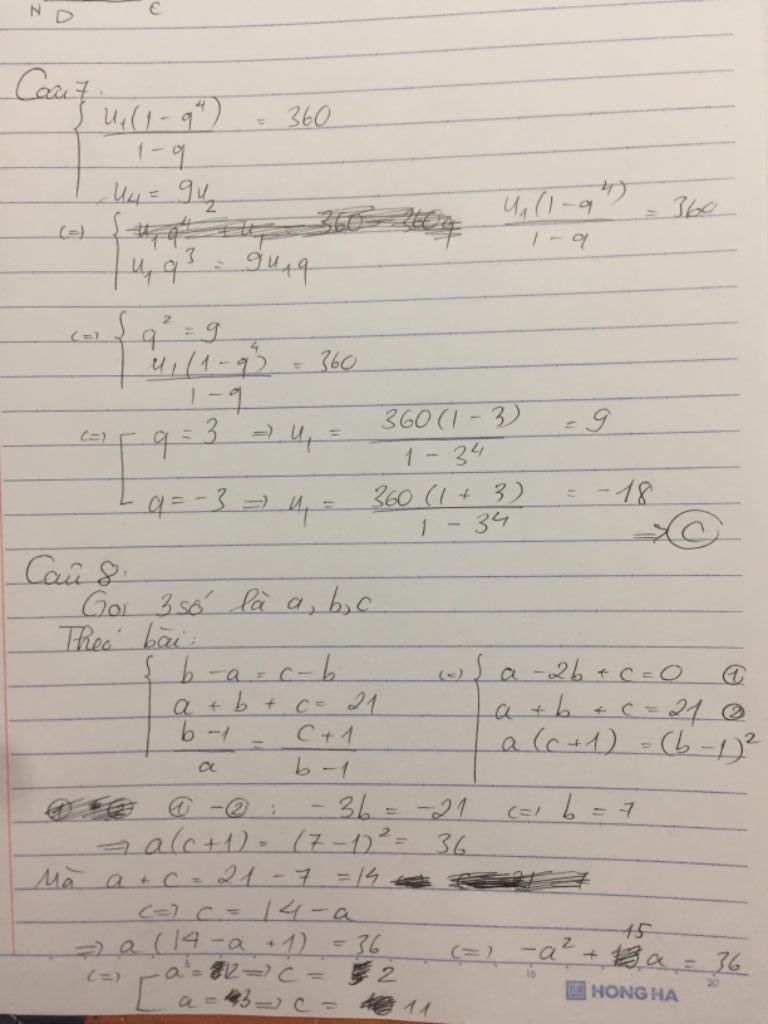 N D C
Câu 7:
u₁(1-q⁴)/(1-q) = 360
u₄ = 9u₂
(=) u₁(1-q⁴)/(1-q) = 360
u₁q³ = 9u₁q
(=) q² = 9
u₁(1-q⁴)/(1-q) = 360
(=) q = 3 => u₁ = 360(1-3)/(1-3⁴) = 9
q = -3 => u₁ = 360(1+3)/(1-3⁴) = -18
=> C
Câu 8:
Gọi 3 số là a, b, c
Theo bài:
b - a = c - b (=) a - 2b + c = 0 ①
a + b + c = 21 a + b + c = 21 ②
(b-1)/a = (c+1)/(b-1) a(c+1) = (b-1)²
① - ② : -3b = -21 (=) b = 7
=> a(c+1) = (7-1)² = 36
Mà a + c = 21 - 7 = 14
(=) c = 14 - a
=> a(14-a+1) = 36 (=) -a² + 15a = 36
(=) a = 12 => c = 2
a = 3 => c = 11
HONG HA
15 20